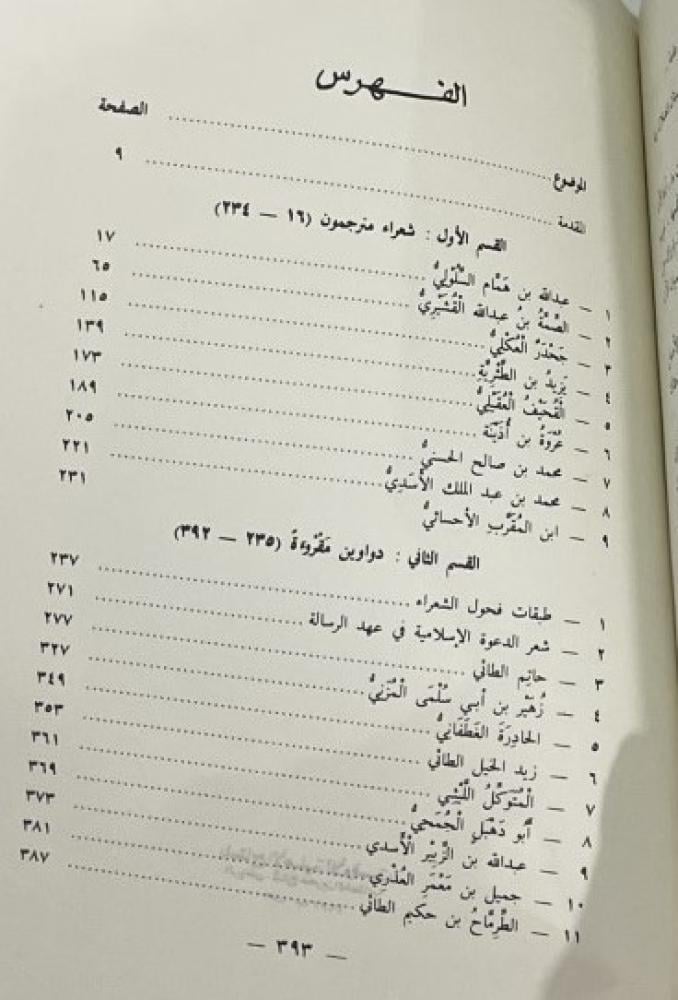 الفهرس
الموضوع ........ الصفحة
المقدمة ........ ٩
القسم الأول : شعراء مترجمون (١٦ — ٢٣٤)
١ — عبدالله بن هَمَّام السَّلُوْلِيُّ ........ ١٧
٢ — الصِّمَّةُ بنُ عبدالله الْقُشَيْرِيُّ ........ ٦٥
٣ — جَحْدَرٌ الْعُكْلِيُّ ........ ١١٥
٤ — يَزِيدُ بن الطَّثْرِيَّةِ ........ ١٣٩
٥ — الْقُحَيْفُ الْعُقَيْلِيُّ ........ ١٧٣
٦ — عُرْوَةُ بن أُذَيْنَة ........ ١٨٩
٧ — محمد بن صالح الحسنيُّ ........ ٢٠٥
٨ — محمد بن عبد الملك الأَسَدِيُّ ........ ٢٢١
٩ — ابن المُقَرَّبِ الأحسائيُّ ٢٣١
القسم الثاني : دواوين مَقْرُوءةً (٢٣٥ — ٣٩٢)
١ — طبقات فحول الشعراء ........ ٢٣٧
٢ — شعر الدعوة الإسلامية في عهد الرسالة ........ ٢٧١
٣ — حاتِم الطائي ........ ٢٧٧
٤ — زُهَيْر بن أبي سُلْمَى الْمُزَنِيُّ ........ ٣٢٧
٥ — الحادِرَة الغَطَفَانيُّ ........ ٣٤٩
٦ — زيد الخيل الطائي ........ ٣٥٣
٧ — الْمُتَوَكِّلُ اللَّيْثِي ........ ٣٦١
٨ — أَبُو دَهْبَلٍ الْجُمَحيُّ ........ ٣٦٩
٩ — عبدالله بن الزَّبِيْر الأَسدي ........ ٣٧٣
١٠ — جميل بن مَعْمَرٍ العُذْرِي ........ ٣٨١
١١ — الطِّرِمَّاحُ بن حكيم الطائي ........ ٣٨٧
— ٣٩٣ —